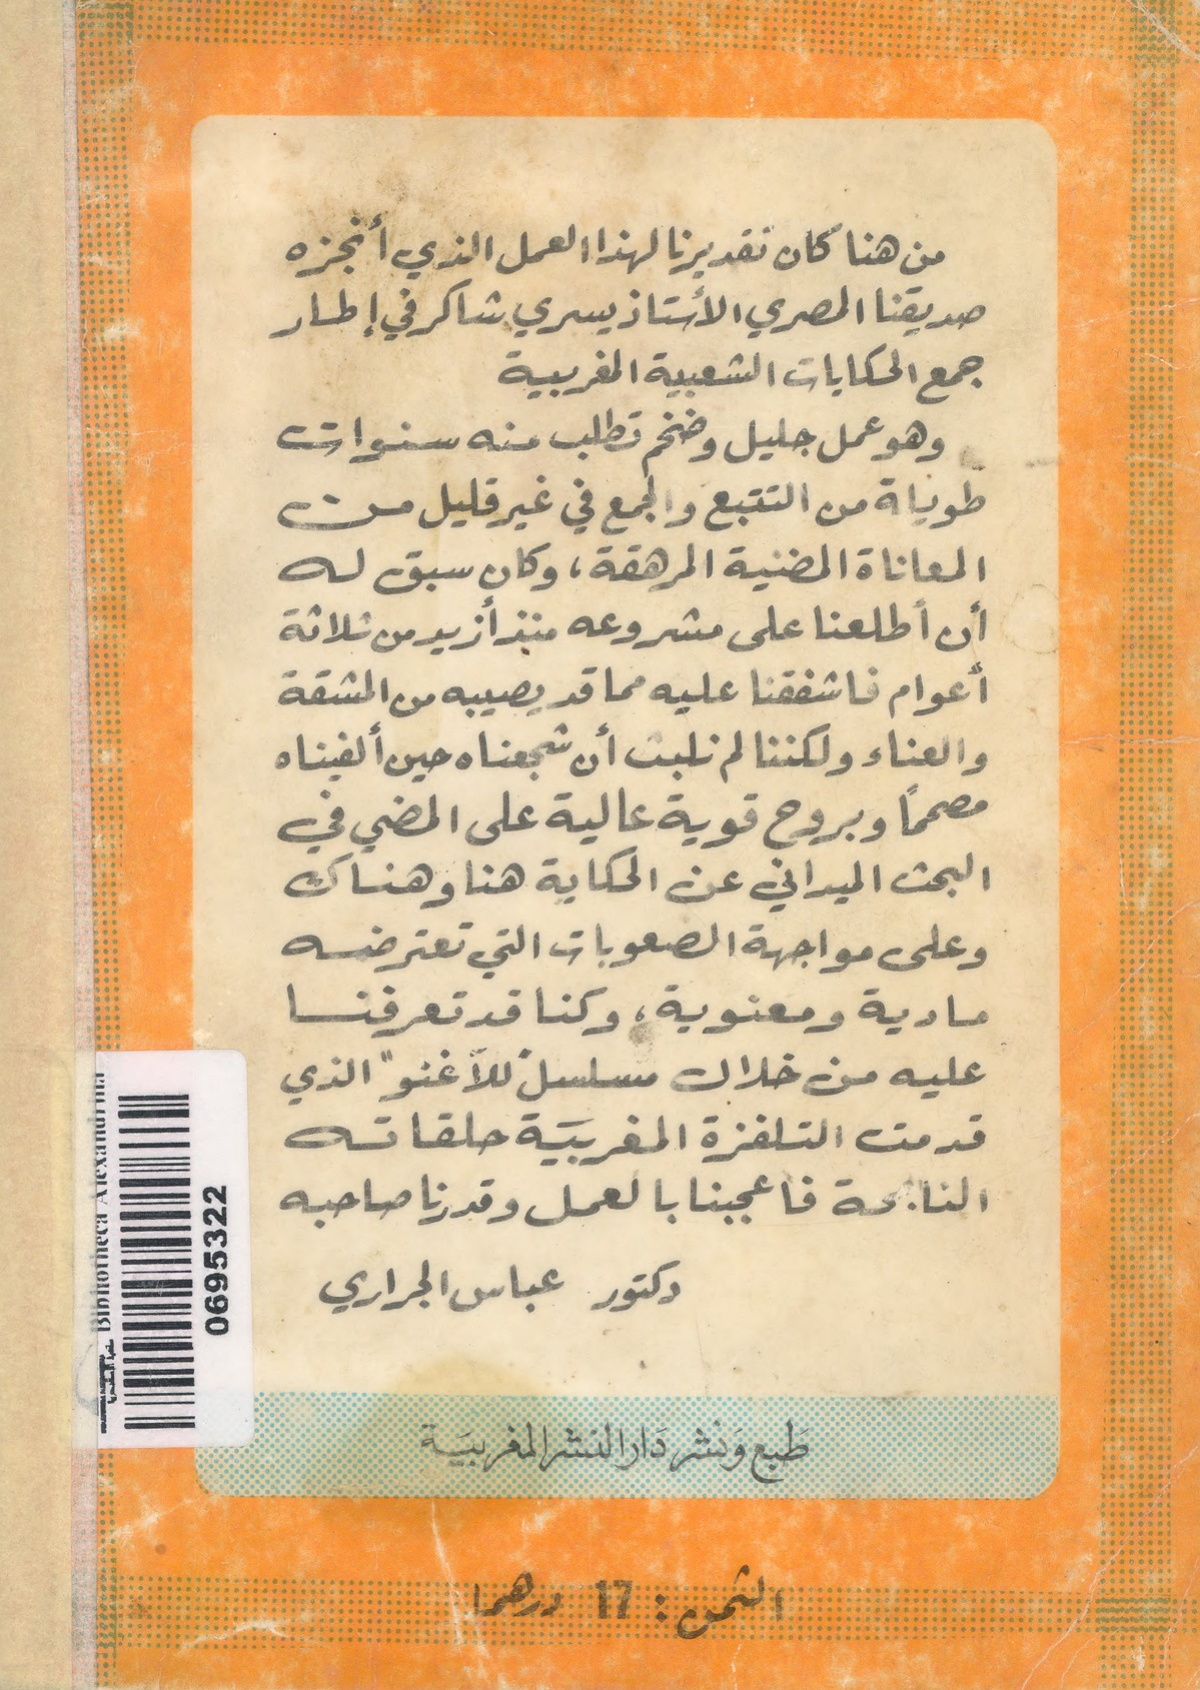 من هنا كان تقديرنا لهذا العمل الذي أنجزه
صديقنا المصري الأستاذ يسري شاكر في إطار
جمع الحكايات الشعبية المغربية
وهو عمل جليل وضخم تطلب منه سنوات
طويلة من التتبع والجمع في غير قليل من
المعاناة المضنية المرهقة، وكان سبق له
أن أطلعنا على مشروعه منذ أزيد من ثلاثة
أعوام فاشفقنا عليه مما قد يصيبه من المشقة
والعناء ولكننا لم نلبث أن شجعناه حين ألفيناه
مصمماً وبروح قوية عالية على المضي في
البحث الميداني عن الحكاية هنا وهناك
وعلى مواجهة الصعوبات التي تعترضه
مادية ومعنوية، وكنا قد تعرفنا
عليه من خلال مسلسل "للاّ غنو" الذي
قدمت التلفزة المغربيَة حلقاته
الناجحة فاعجبنا بالعمل وقدرنا صاحبه
دكتور عباس الجراري
طَبع وَنشر دَار النشر المغربيَة
الثمن: 17 درهما
Bibliotheca Alexandrina
مكتبة الإسكندرية
0695322